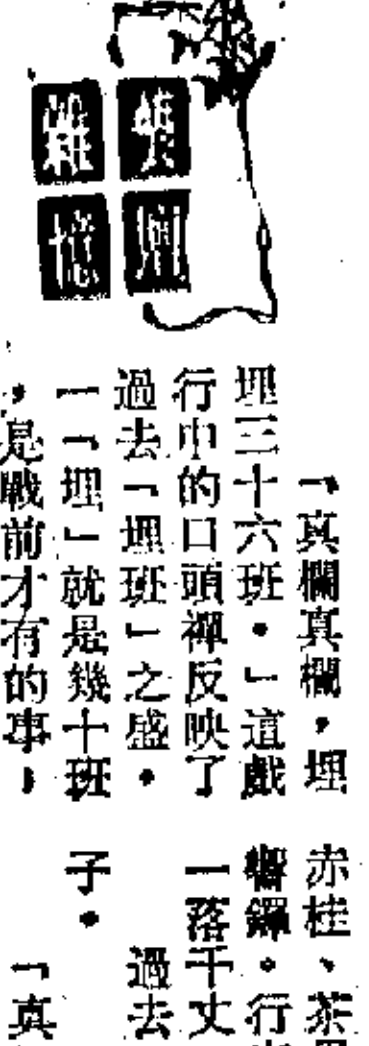 雜憶
「真欄真欄，埋
埋三十六班。」這戲
行中的口頭禪反映了
過去「埋班」之盛。
一「埋」就是幾十班
，是戰前才有的事，
赤桂、茶
響鑼。行
一落千丈
過去
子。
「真